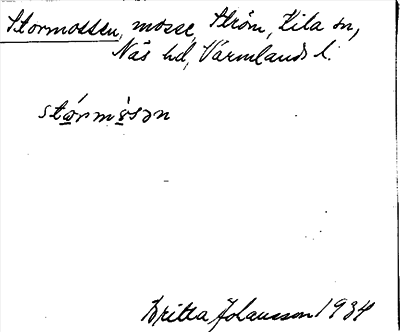 Stormossen, mosse, Ström, Kila sn,
Näs hd, Värmlands l.
stǿrmòsən
Britta Johansson 1934